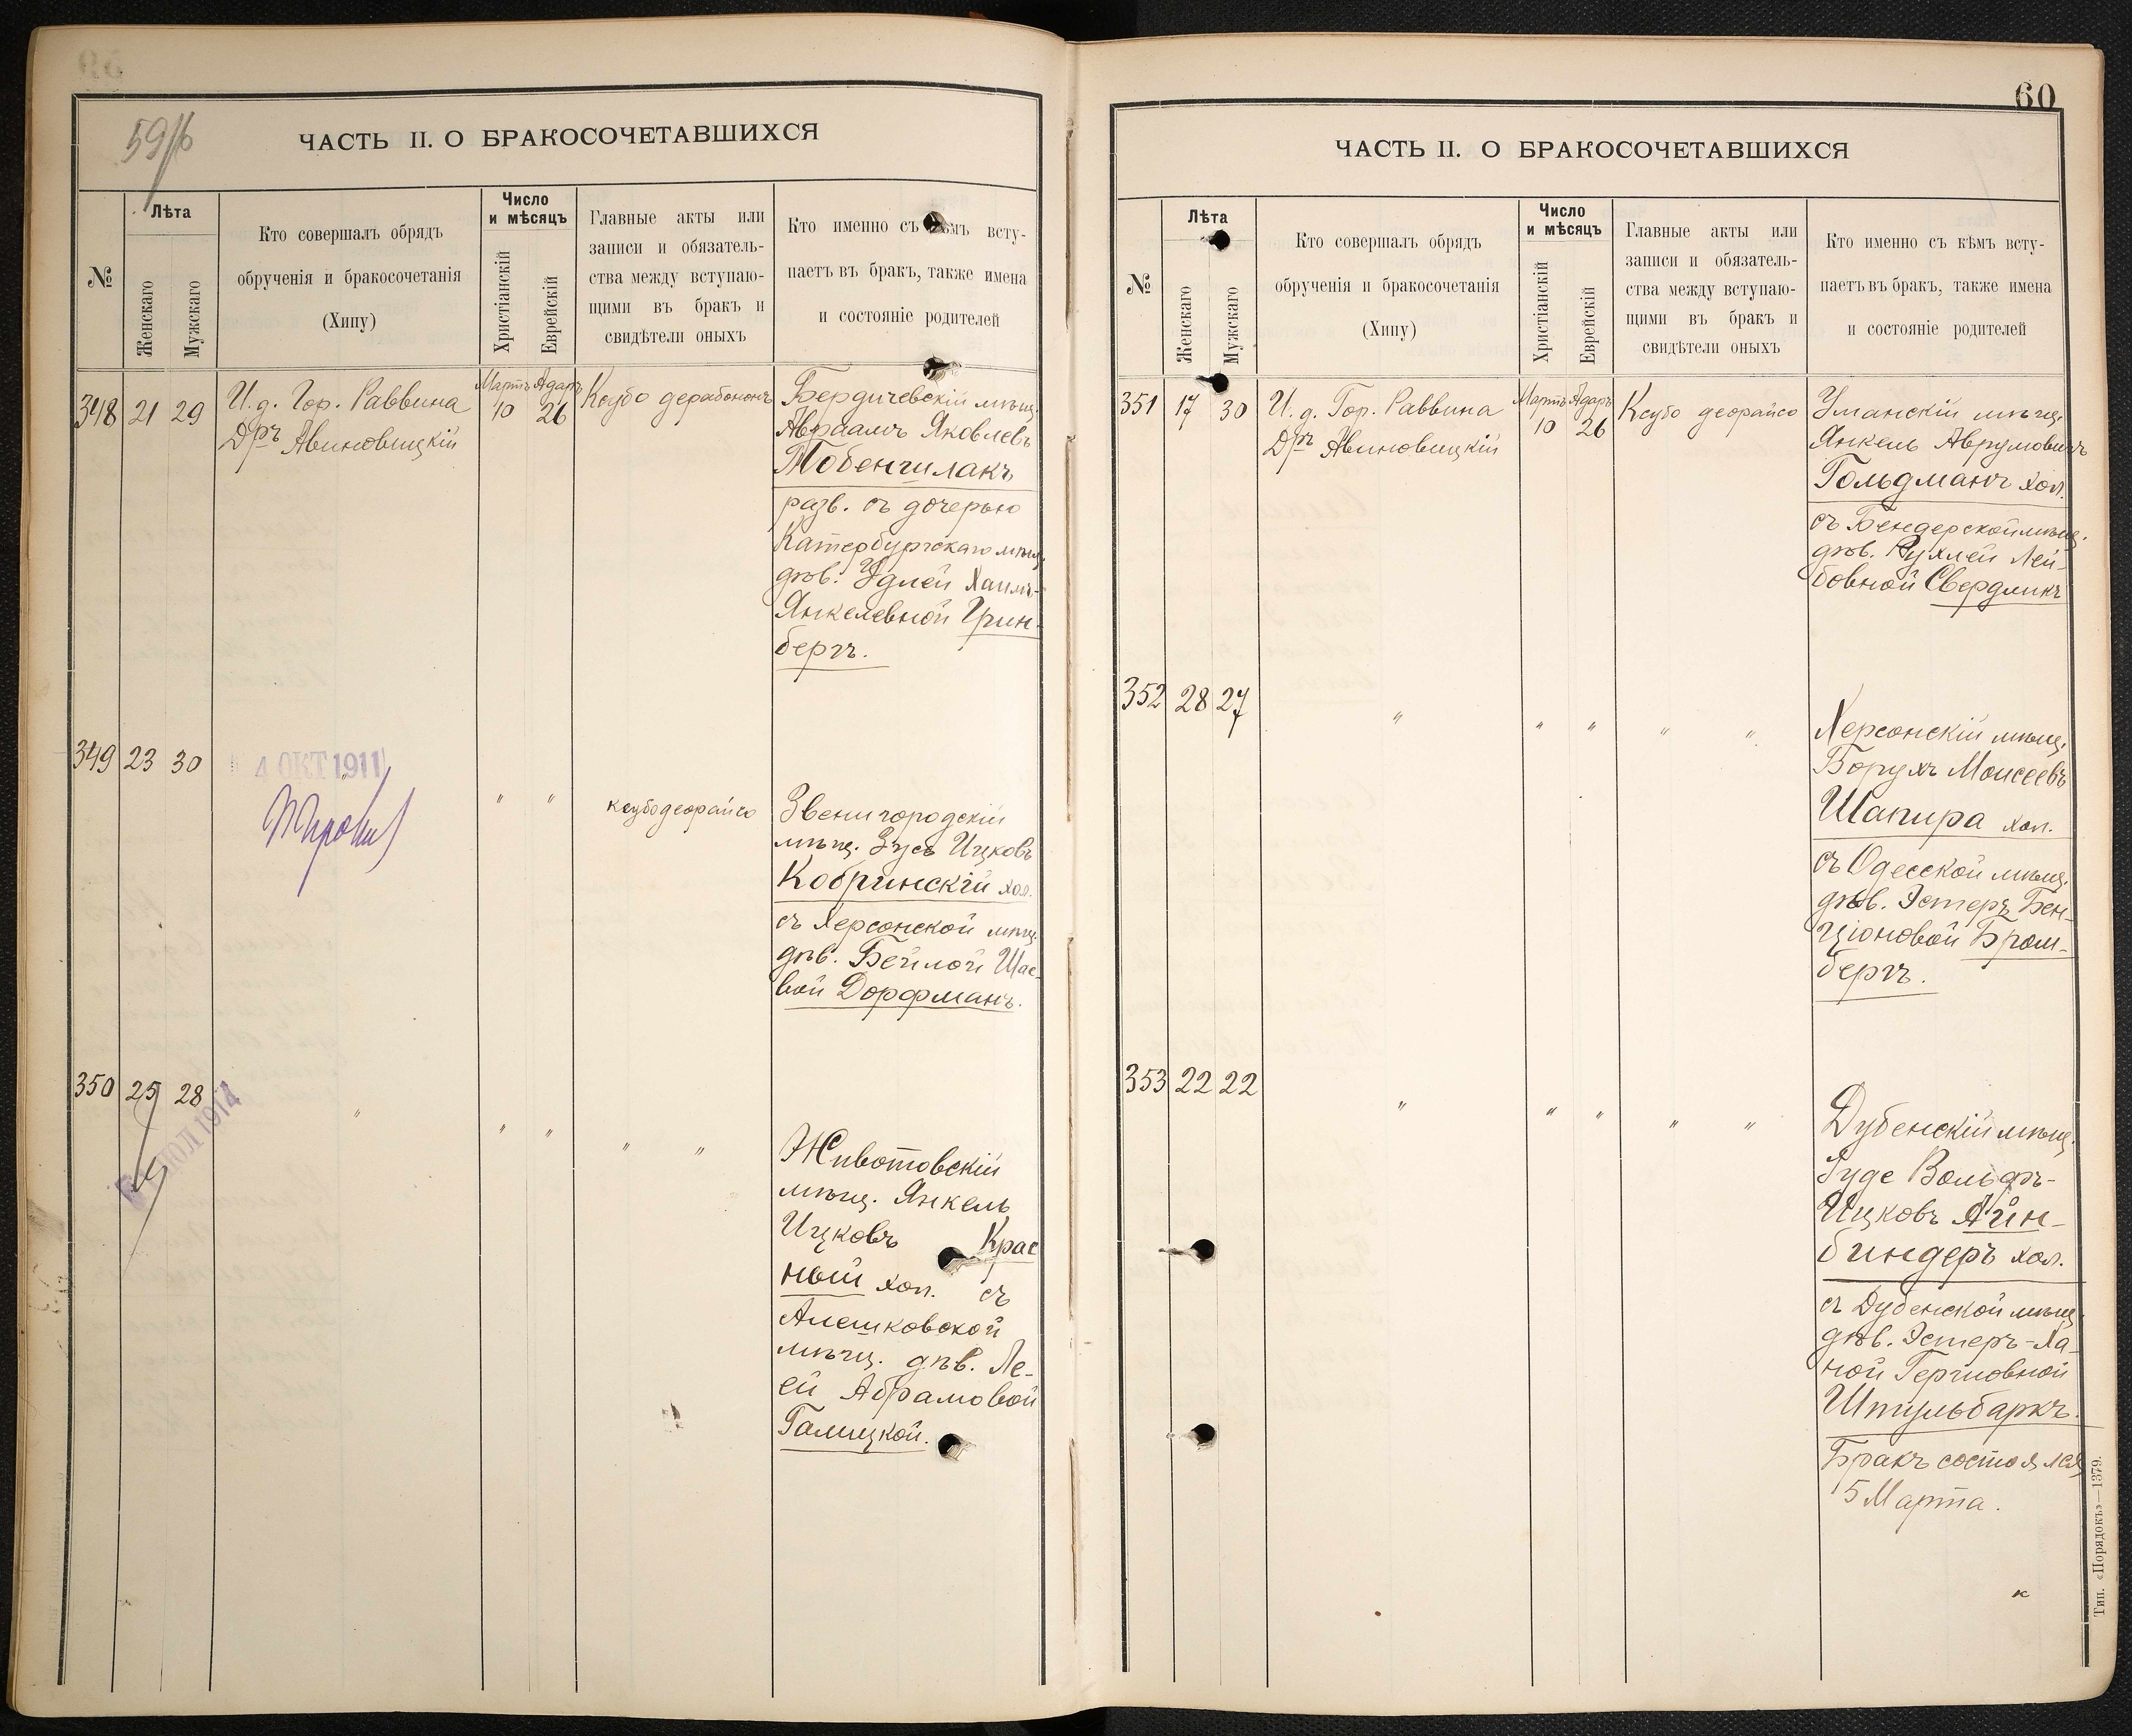 59 / б
ЧАСТЬ II. О БРАКОСОЧЕТАВШИХСЯ
№
Лѣта
Женскаго
Мужскаго
Кто совершалъ обрядъ
обрученія и бракосочетанія
(Хипу)
Число
и мѣсяцъ
Христіанскій
Еврейскій
Главные акты или
записи и обязатель-
ства между вступаю-
щими въ бракъ и
свидѣтели оныхъ
Кто именно съ кѣмъ всту-
паетъ въ бракъ, также имена
и состояніе родителей
348 21 29
И. д. Гор. Раввина
Дръ Авиновицкій
Мартъ Адаръ
10 26
Ксубо дерабононъ
Бердичевскій мѣщ.
Авраамъ Яковлевъ
Тобенчилакъ
разв. съ дочерью
Катербургскаго мѣщ.
дѣв. Удлей Хаимъ-
Янкелевной Грин-
бергъ.
349 23 30
4 ОКТ 1911
" " "
ксубо деорайсо
Звенигородскій
мѣщ. Зусь Ицковъ
Кобринскій хол.
съ Херсонской мѣщ.
дѣв. Бейлой Шае-
вой Дорфманъ.
350 25 28
ІЮЛ 1914
" " " " "
Животовскій
мѣщ. Янкель
Ицковъ Крас
ный хол. съ
Алешковской
мѣщ. дѣв. Ле-
ей Абрамовой
Галицкой.
60
ЧАСТЬ II. О БРАКОСОЧЕТАВШИХСЯ
№
Лѣта
Женскаго
Мужскаго
Кто совершалъ обрядъ
обрученія и бракосочетанія
(Хипу)
Число
и мѣсяцъ
Христіанскій
Еврейскій
Главные акты или
записи и обязатель-
ства между вступаю-
щими въ бракъ и
свидѣтели оныхъ
Кто именно съ кѣмъ всту-
паетъ въ бракъ, также имена
и состояніе родителей
351 17 30
И. д. Гор. Раввина
Дръ Авиновицкій
Мартъ Адаръ
10 26
Ксубо деорайсо
Уманскій мѣщ.
Янкель Аврумовичъ
Гольдманъ хол.
съ Бендерской мѣщ.
дѣв. Рухлей Лей-
бовной Свердликъ
352 28 27
" " " " "
Херсонскій мѣщ.
Борухъ Моисеевъ
Шапира хол.
съ Одесской мѣщ.
дѣв. Эстеръ Бен-
ціоновой Бром-
бергъ.
353 22 22
" " " " "
Дубенскій мѣщ.
Іуде Вольфъ-
Ицковъ Айн-
биндеръ хол.
съ Дубенской мѣщ.
дѣв. Эстеръ-Ха-
ной Гершовной
Шпульбаркъ.
Бракъ состоялся
5 Марта.
к
Тип. «Порядокъ»—1379.